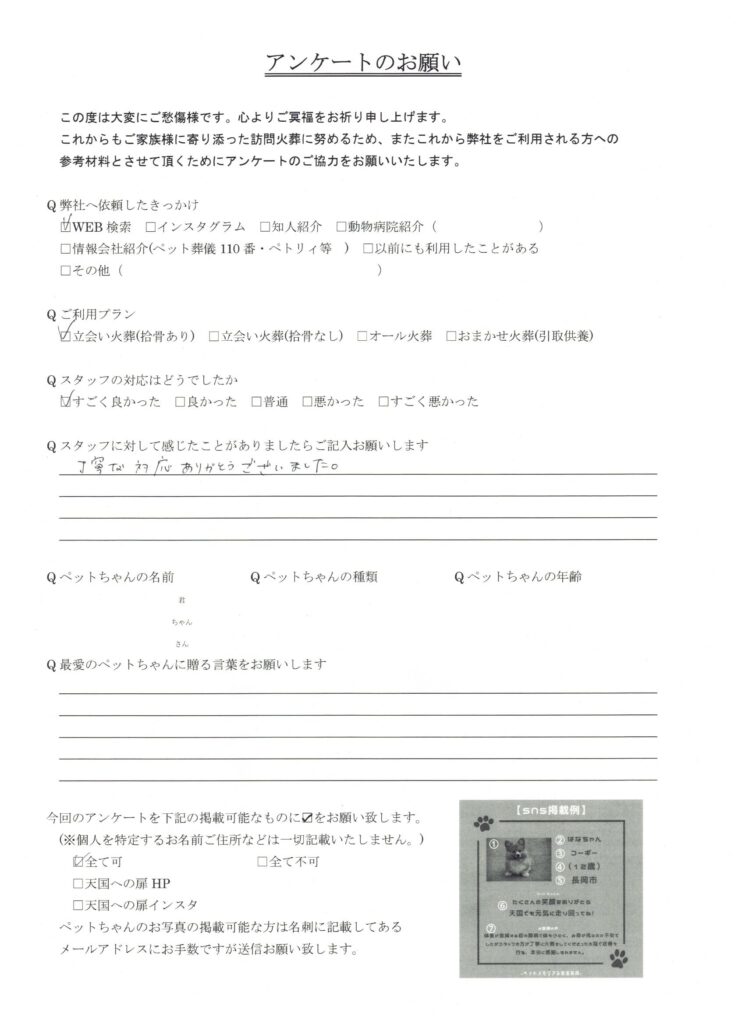 アンケートのお願い
この度は大変にご愁傷様です。心よりご冥福をお祈り申し上げます。
これからもご家族様に寄り添った訪問火葬に努めるため、またこれから弊社をご利用される方への
参考材料とさせて頂くためにアンケートのご協力をお願いいたします。
Q 弊社へ依頼したきっかけ
☑WEB 検索 □インスタグラム □知人紹介 □動物病院紹介（ ）
□情報会社紹介(ペット葬儀 110 番・ペトリィ等 ) □以前にも利用したことがある
□その他（ ）
Q ご利用プラン
☑立会い火葬(拾骨あり) □立会い火葬(拾骨なし) □オール火葬 □おまかせ火葬(引取供養)
Q スタッフの対応はどうでしたか
☑すごく良かった □良かった □普通 □悪かった □すごく悪かった
Q スタッフに対して感じたことがありましたらご記入お願いします
丁寧な対応ありがとうございました。
Q ペットちゃんの名前 Q ペットちゃんの種類 Q ペットちゃんの年齢
君
ちゃん
さん
Q 最愛のペットちゃんに贈る言葉をお願いします
今回のアンケートを下記の掲載可能なものに☑をお願い致します。
(※個人を特定するお名前ご住所などは一切記載いたしません。)
☑全て可 □全て不可
□天国への扉 HP
□天国への扉インスタ
ペットちゃんのお写真の掲載可能な方は名刺に記載してある
メールアドレスにお手数ですが送信お願い致します。
【sns掲載例】
① ② はなちゃん
③ コーギー
④ (12歳)
⑤ 長岡市
⑥ たくさんの笑顔をありがとう
天国でも元気に走り回ってね！
⑦